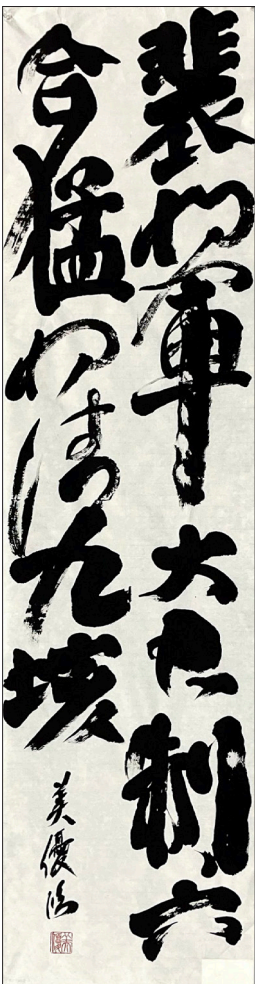 裴将軍大君制六
合猛将清九垓
美優臨